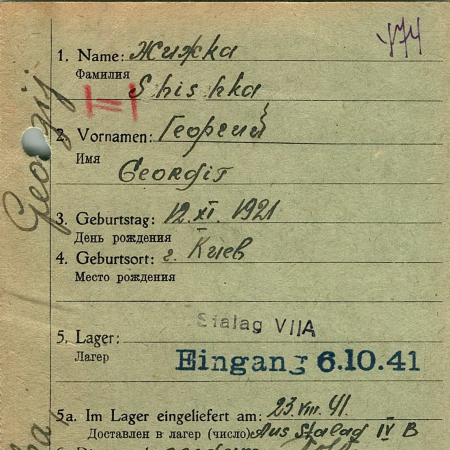 474
1. Name: Жижка
Фамилия
Shishka
2. Vornamen: Георгий
Имя
Georgij
Georgij
3. Geburtstag: 12.XI. 1921
День рождения
4. Geburtsort: г. Киев
Место рождения
5. Lager:
Лагерь
Stalag VIIA
Eingang 6.10.41
5a. Im Lager eingeliefert am: 23.VIII.41.
Доставлен в лагерь (число) Aus Stalag IV B